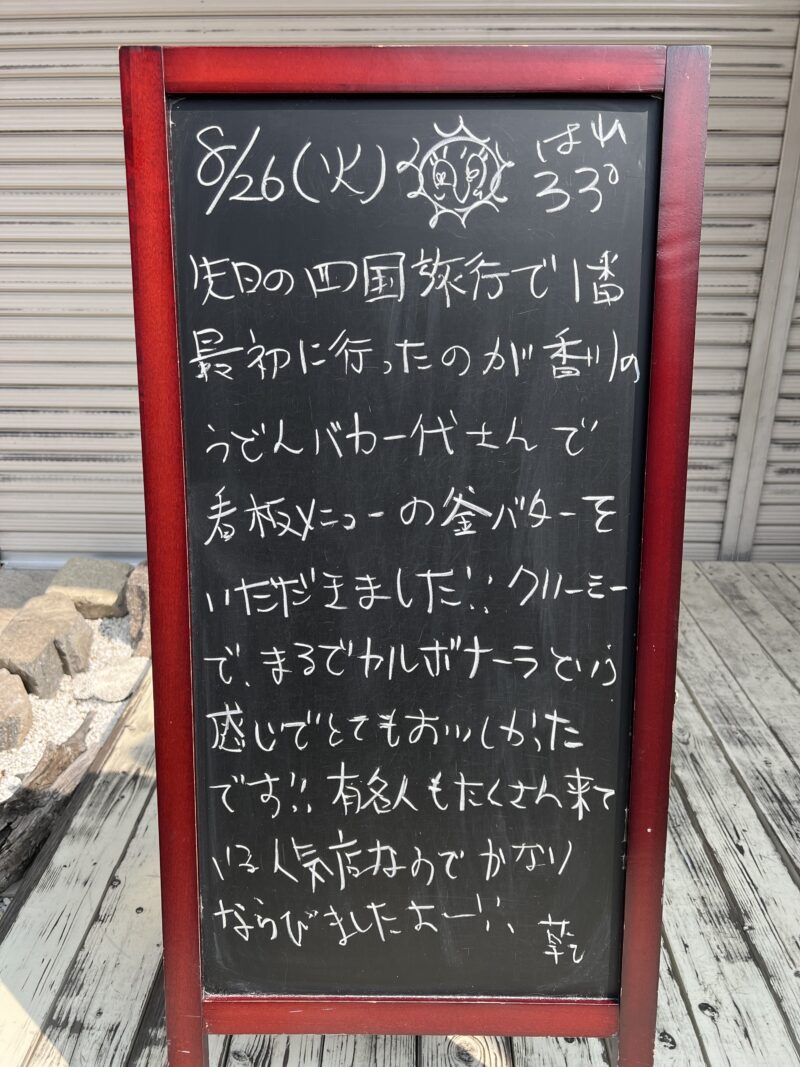 8/26(火) はれ
33°
先日の四国旅行で1番
最初に行ったのが香川の
うどんバカ一代さんで
看板メニューの釜バターを
いただきました!! クリーミー
で、まるでカルボナーラという
感じでとてもおいしかった
です!! 有名人もたくさん来て
いる人気店なのでかなり
ならびましたよー!!